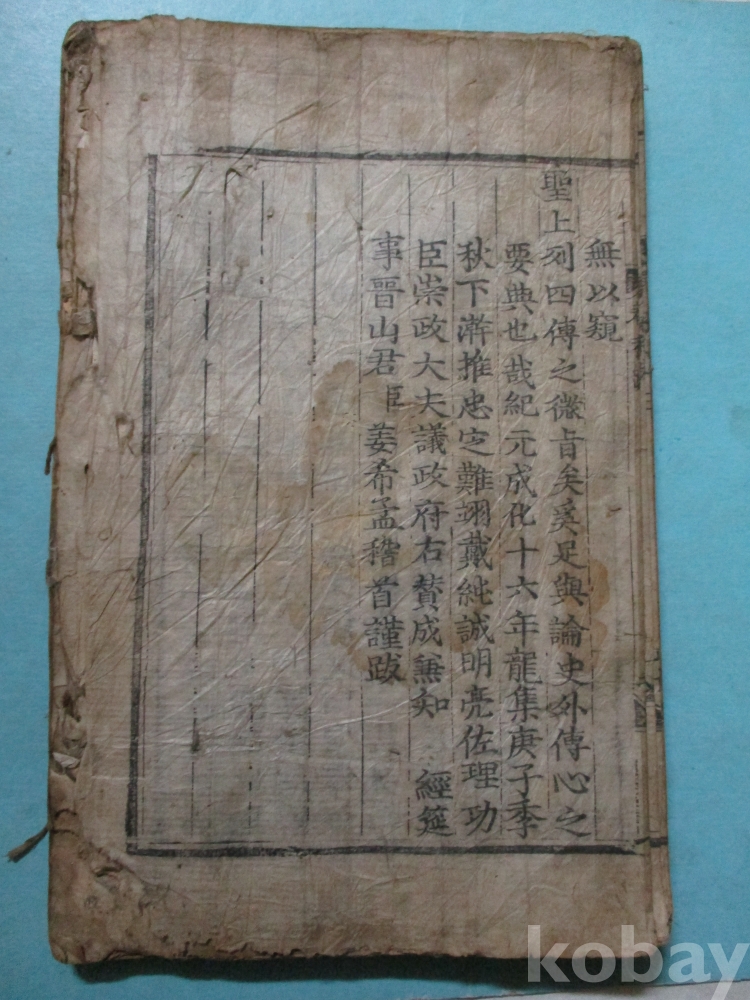 無以窺
聖上列四傳之微旨矣奚足與論史外傳心之
要典也哉紀元成化十六年龍集庚子季
秋下澣推忠定難翊戴純誠明亮佐理功
臣崇政大夫議政府右贊成兼知 經筵
事晋山君臣姜希孟稽首謹跋
kobay